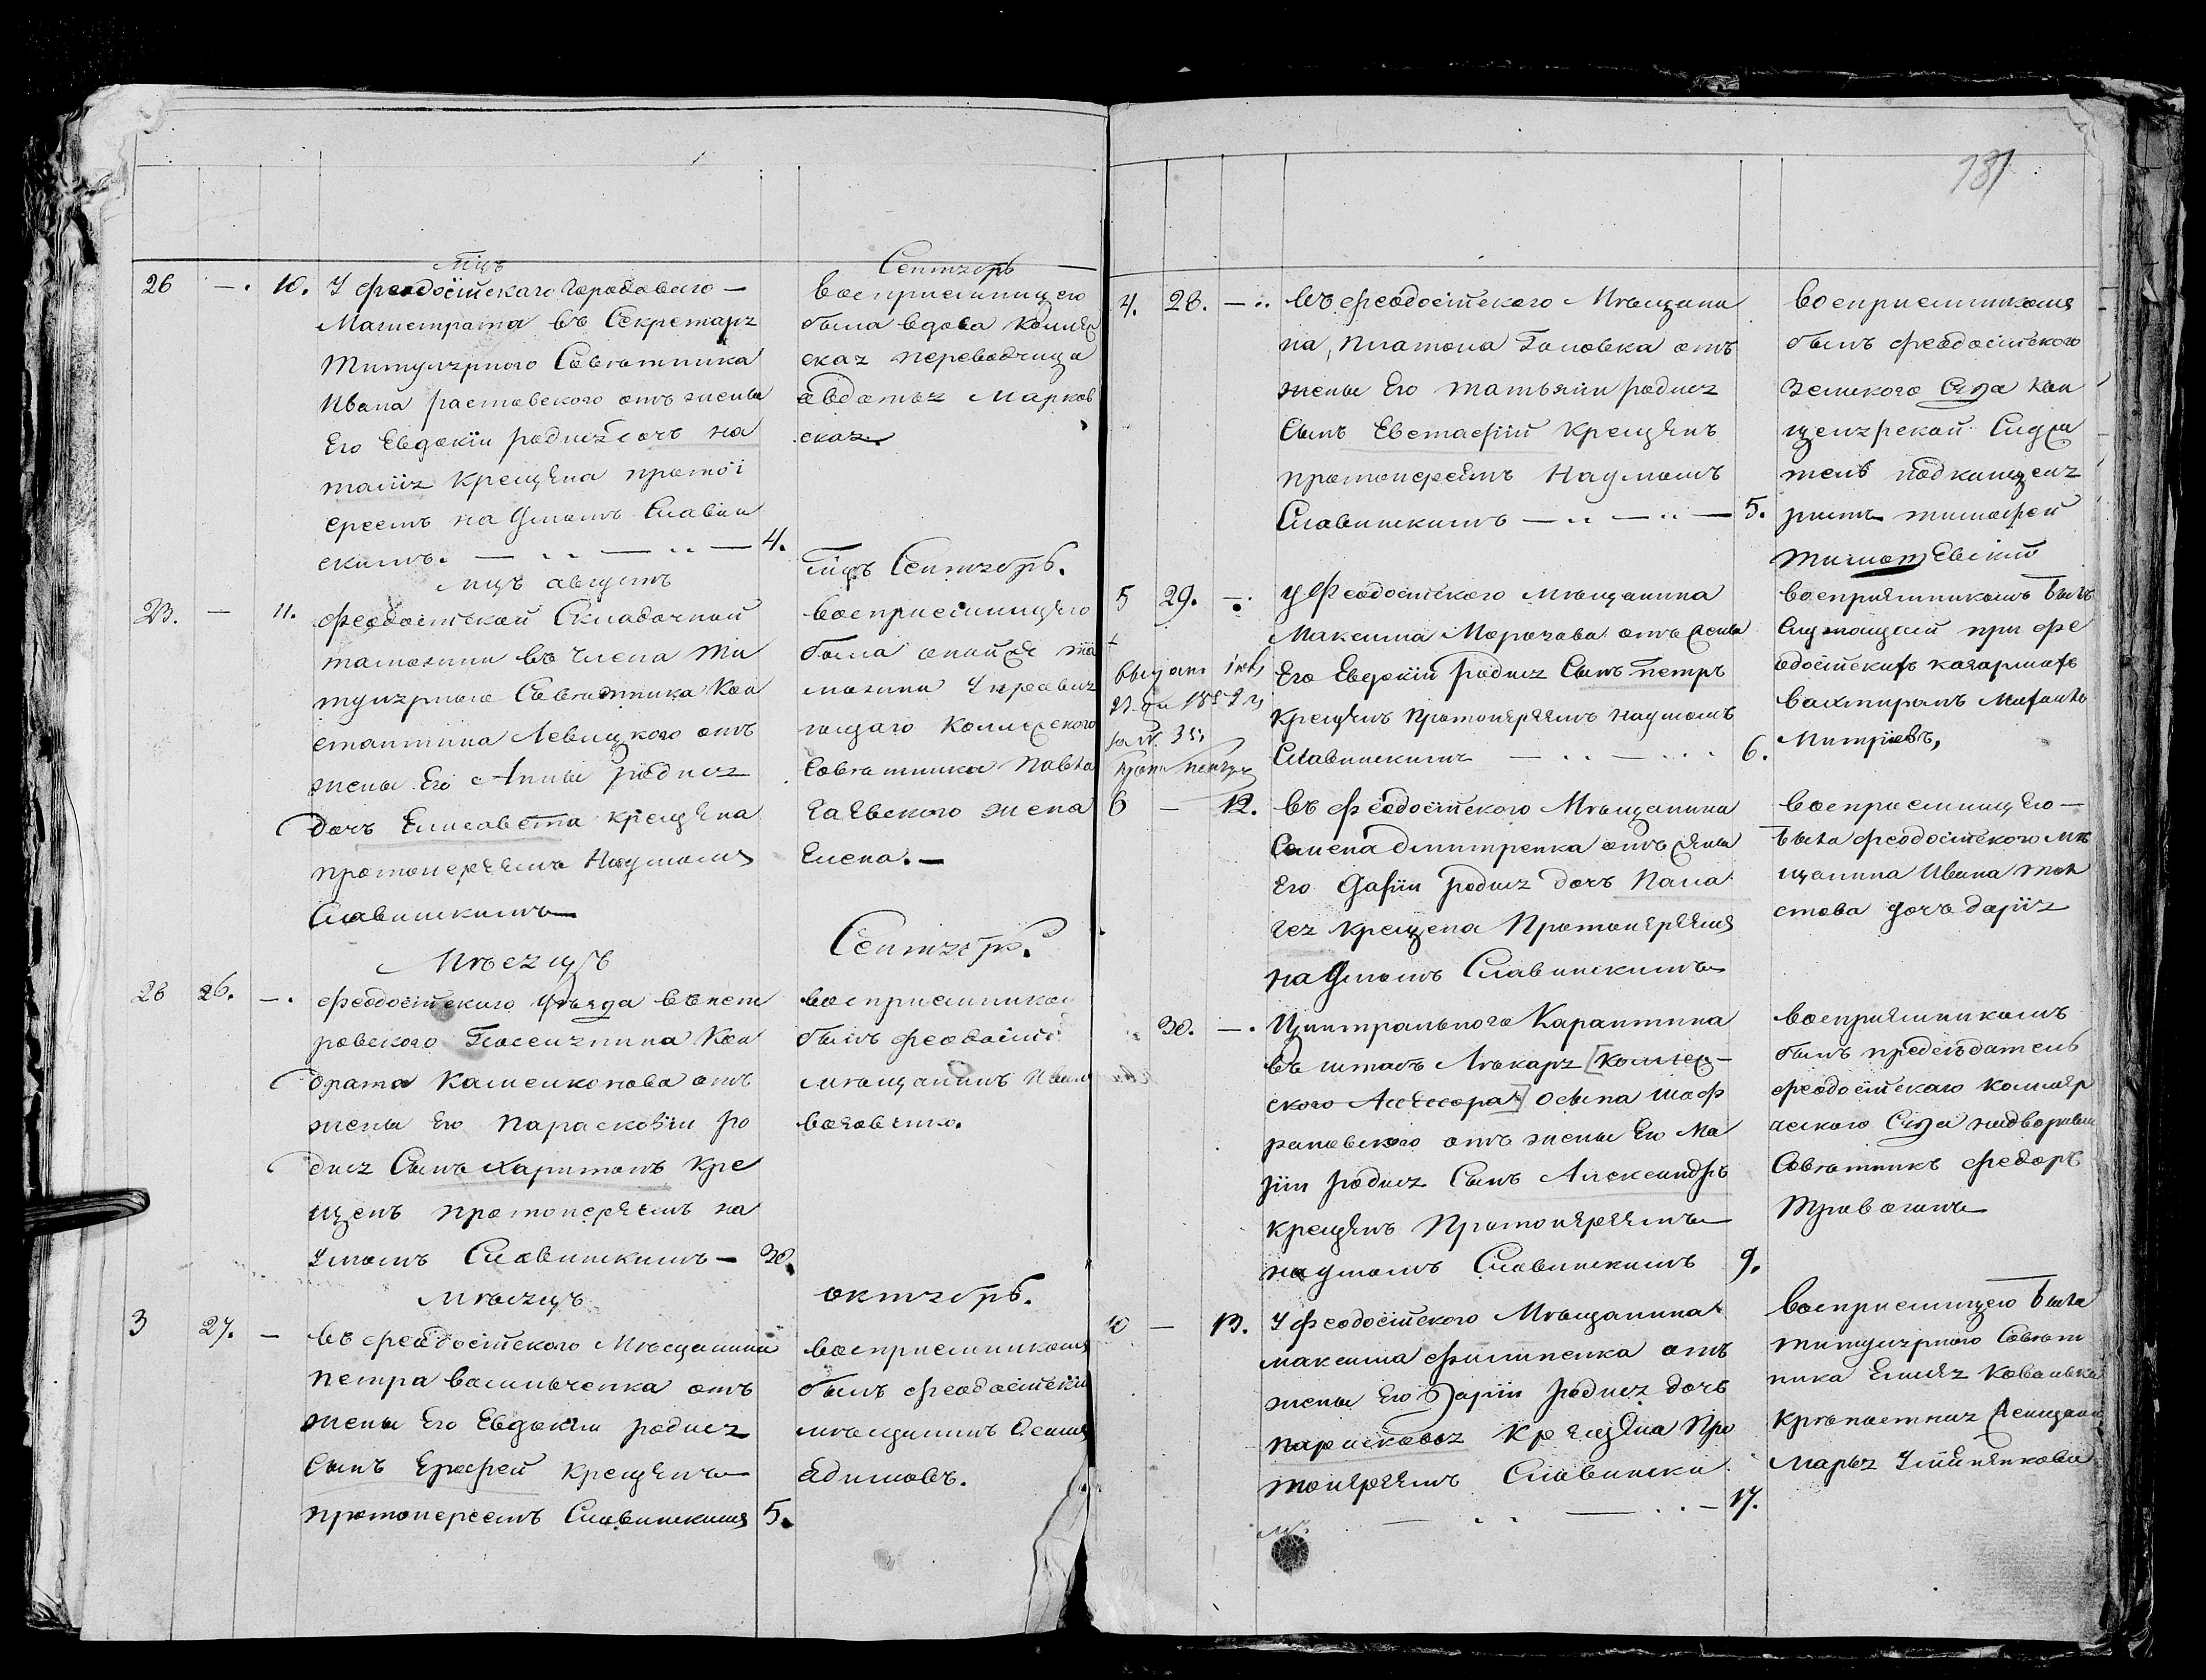 мцъ Септября
26 — 10. У феодосійскаго Городоваго —
Магистрата въ Секретаря
Титулярного Советника
Ивана растовского отъ жены
Его Евдокіи родися дочъ На
таліа Крещена протоі
ереемъ на Умомъ Славин
скимъ. — 4.
Восприемницею
была вдова Колле
ская переводчица
авдотья Марков
ская
мцъ августъ
мцъ Септябрь.
23. — 11. феодосійской Складочной
таможни въ члена Ти
тулярного Советника Кон
стантина Левицкого отъ
жены Его Анны родися
дочъ Елисавета Крещена
протоиереемъ Наумомъ
Славинскимъ
восприемницею
была оной же та
можни Управля
ющаго Коллежского
Советника Павла
Гаевского жена
Елена. —
Месяцъ Септябрь.
26 26. —. феодосійского уезда въ пет
ровского Поселянина Кон
драта Каменконова отъ
жены Его Парасковіи ро
дися Сынъ Харитонъ Кре
щенъ протоиереемъ на
Умомъ Славинскимъ — 30.
восприемником
былъ феодосійс
мещанинъ Иван
вовченко.
Месяцъ октябрь.
3 27. — въ феодосійского Месцанина
петра васильченка отъ
жены Его Евдокіи родися
Сынъ Ерофей Крещенъ
протоиереемъ Славинскимъ 5.
восприемникомъ
былъ феодосійскій
мещанинъ Осипъ
Адимовъ.
131
4. 28. — въ феодосійского Мещани
на, платона Головка отъ
жены Его татьяни родися
Сынъ Евстафій Крещенъ
протоиереемъ Наумомъ
Славинскимъ — 5.
восприемникомъ
былъ феодосійского
земского Суда Кан
целярской Служи
тель подканцеля
ристъ тимофей
тимошевскій
5 29. — У Феодосійского мещанина
Максима Морозова отъ жены
Его Евдокіи родися Сынъ петръ
Крещенъ Протоиереемъ Наумомъ
Славинскимъ — 6.
восприемникомъ былъ
Служащій при фе
одосійскихъ казармахъ
вахтиромъ Михаило
Митріевъ,
6 — 12. въ феодосійского Мещанина
Семена дмитренка отъ жены
Его Дафіи родися дочъ Пала
гея Крещена Протоиереемъ
на Умомъ Славинскимъ
восприемницею —
была феодосійского ме
щанина Ивана тол
стова дочъ даріа
30. —. Центрального Карантина
въ штабъ Лекаря [Коллеж-
ского Ассесора] Осипа шаф
рановского отъ жены Его Ма
ріи родися Сынъ Александръ
Крещенъ Протоиереемъ
наумомъ Славинскимъ 9.
восприемникомъ
былъ председатель
феодосійскаго Коммер
ческого Суда надворный
Советникъ федоръ
Травогинъ
10 — 13. У феодосійского Мещанина
максима филипенка отъ
жены Его Даріи родися дочъ
параскова Крещена Про
тоиереемъ Славински
мъ. — 17.
восприемницею была
титулярного Совет
ника Емелья Ковалева
крепостная женщина
марья